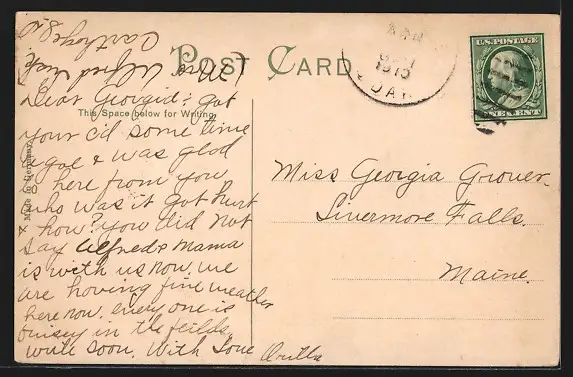 POST CARD
This Space below for Writing
Made in Germany.
U.S. POSTAGE
ONE CENT
1910
Dear Georgia: got
your c'd some time
ago & was glad
to here from you
who was it got hurt
& how? you did not
say Alfred & mama
is with us now, we
are having fine weather
here now, every one is
buisey in the feilds.
write soon. With Love Orilla
Miss Georgia Grover.
Livermore Falls.
Maine.
Mrs Alfred
Carthage